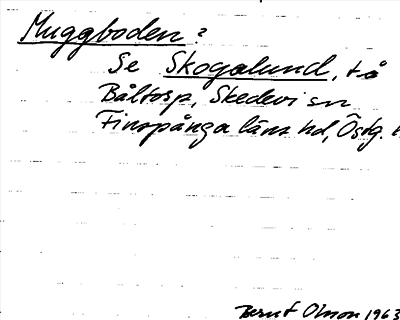 Muggboden?
Se Skogalund, tå
Båltorp, Skedevi sn
Finspånga läns hd, Östg. l.
Bernt Olsson 1963